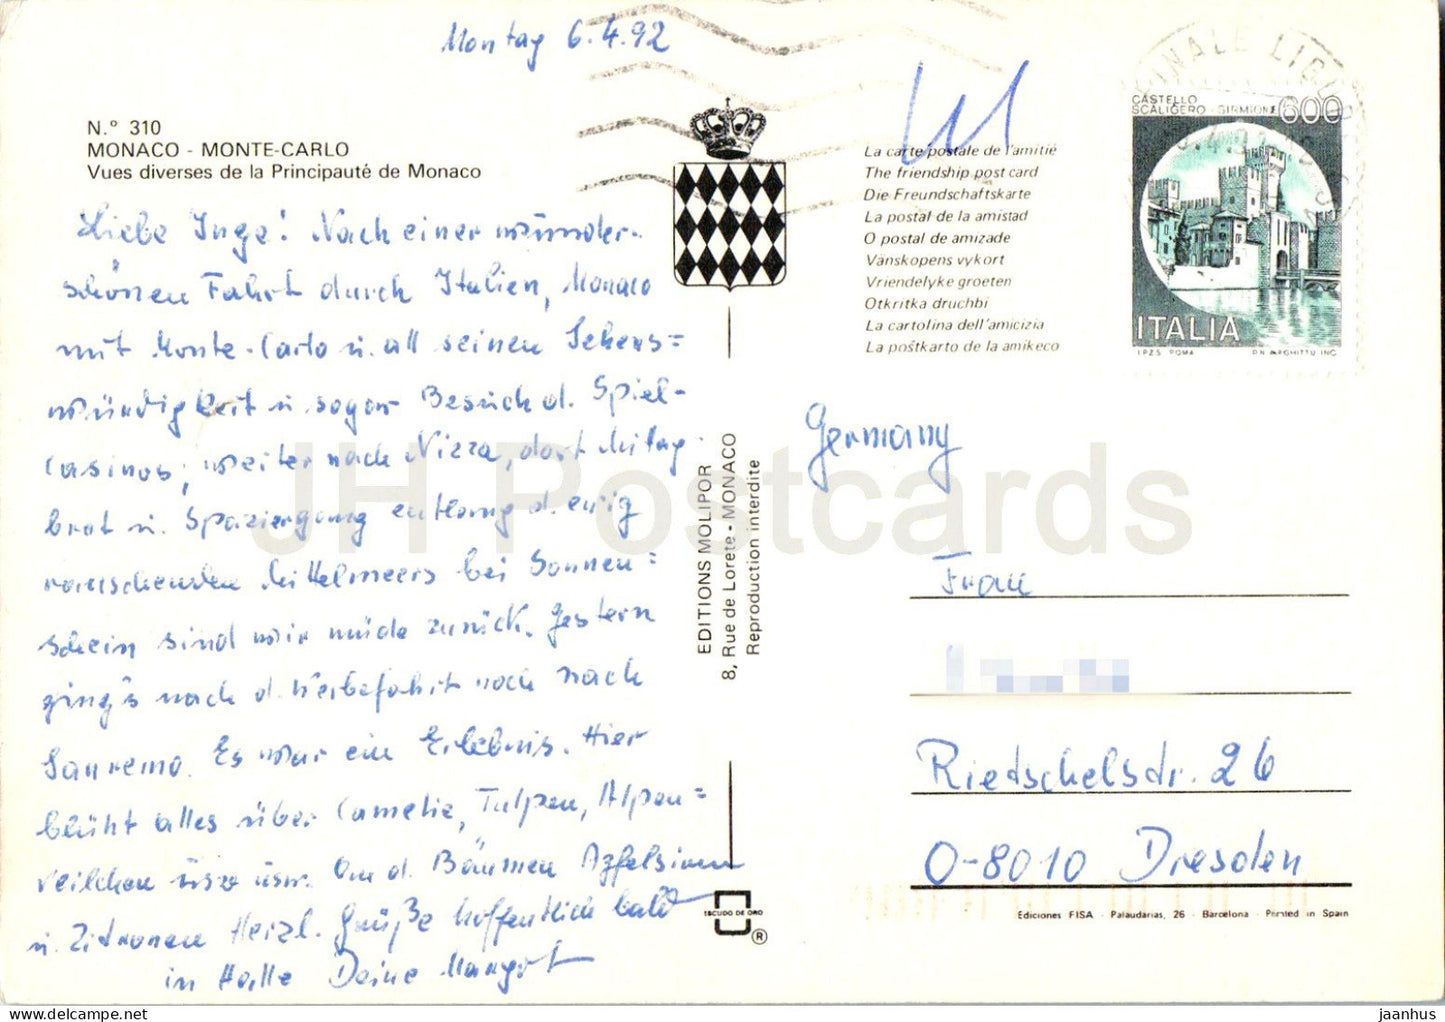 Montag 6.4.92
N.° 310
MONACO - MONTE-CARLO
Vues diverses de la Principauté de Monaco
Liebe Inge! Nach einer wunder-
schönen Fahrt durch Italien, Monaco
mit Monte-Carlo u. all seinen Sehens=
würdigkeit u sogar Besuch d. Spiel-
casinos, weiter nach Nizza, dort Mitag-
brot u. Spaziergang entlang d. ewig
rauschenden Mittelmeers bei Sonnen=
schein sind wir müde zurück. Gestern
ging's nach d. Werbefahrt noch nach
Sanremo. Es war ein Erlebnis. Hier
blüht alles über Camelie, Tulpen, Alpen=
veilchen usw usw. An d. Bäumen Apfelsinen
u. Zitronen Herzl. Grüße hoffentlich bald
in Halle Deine Margot
EDITIONS MOLIPOR
8, Rue de Lorete - MONACO
Reproduction interdite
ESCUDO DE ORO
®
La carte postale de l'amitié
The friendship post card
Die Freundschaftskarte
La postal de la amistad
O postal de amizade
Vänskopens vykort
Vriendelyke groeten
Otkritka druchbi
La cartolina dell'amicizia
La poŝtkarto de la amikeco
CASTELLO
SCALIGERO - SIRMIONE 600
ITALIA
I.P.Z.S. ROMA
Germany
Frau
Rietschelstr. 26
O-8010 Dresden
Ediciones FISA - Palaudarias, 26 - Barcelona - Printed in Spain
JH Postcards
http://www.delcampe.net
jaanhus